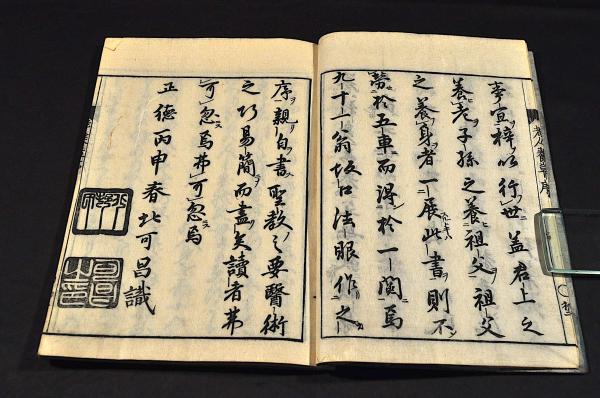 宜梓以行世蓋君上之
養老子孫之養祖父祖父
之養身者一展此書則不
勞於五車而得於一閲焉
九十一翁坂口法眼作之
序親自書聖教之要醫術
之巧易簡而盡矣讀者弗
可忽焉弗可忽焉
正德丙申春北可昌識
老人養草序